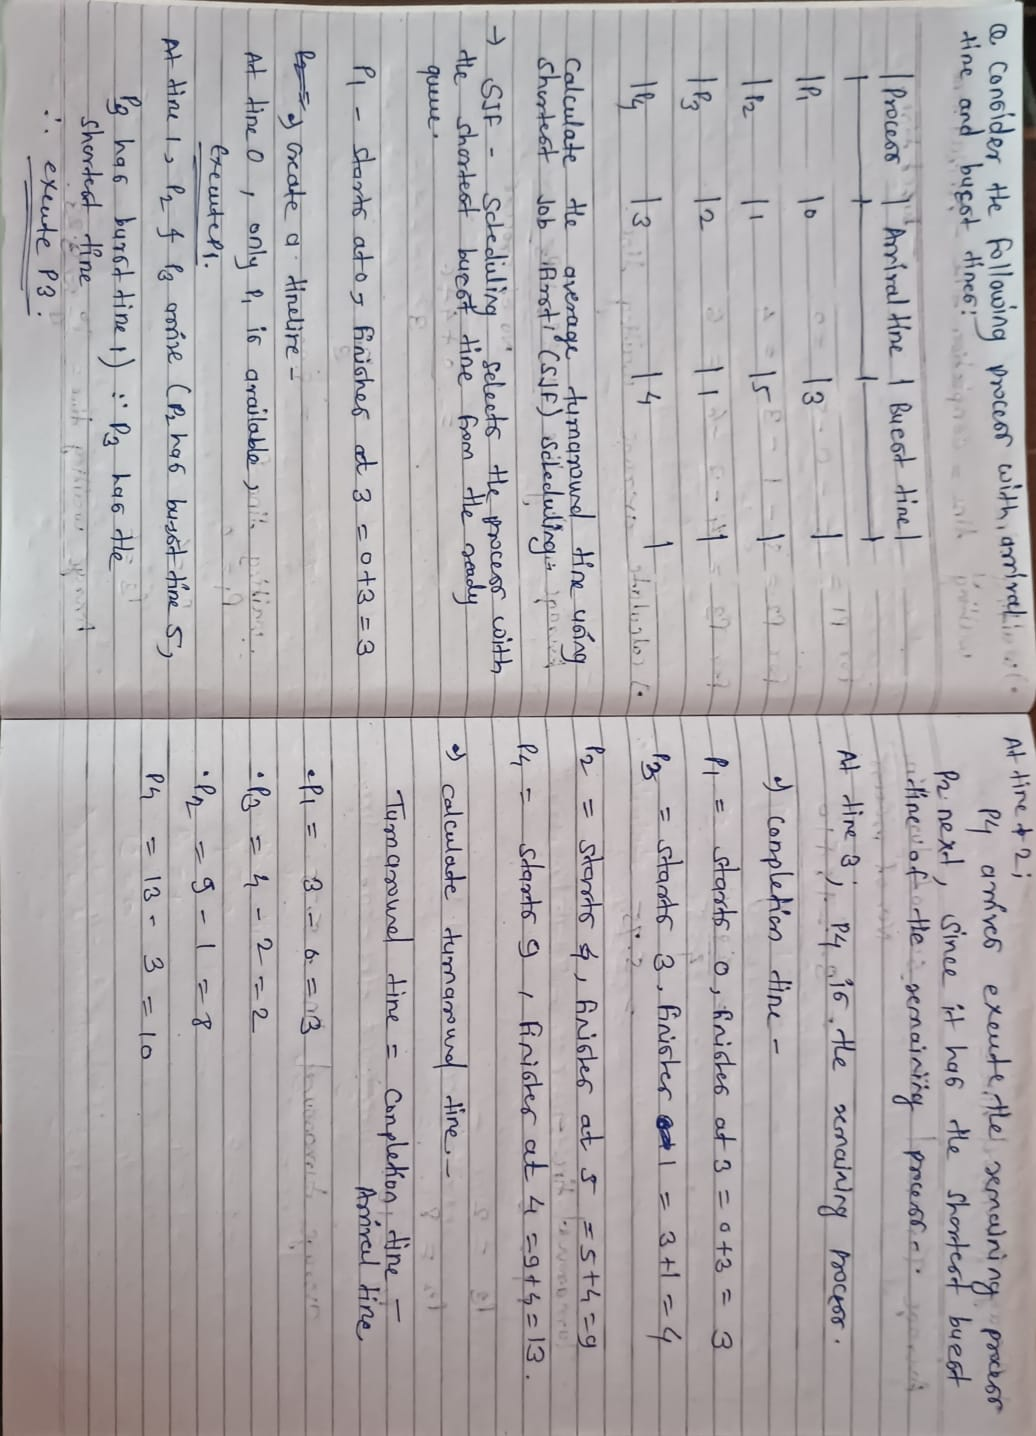 Q Consider the following process with arrival
time and bucst times:
| Process | Arrival time | Bucst time |
| P1 | 0 | 3 |
| P2 | 1 | 5 |
| P3 | 2 | 1 |
| P4 | 3 | 4 |
Calculate the average turnaround time using
shortest Job First (SJF) scheduling.
→ SJF - Scheduling selects the process with
the shortest bucst time from the ready
queue.
P1 - starts at 0, finishes at 3 = 0+3 = 3
•) create a timeline -
At time 0, only P1 is available,
execute P1.
At time 1, P2 & P3 arrive (P2 has burst time 5,
P3 has burst time 1) ∵ P3 has the
shortest time
∴ execute P3.
At time 2;
P4 arrives execute the remaining process
P2 next, since it has the shortest bucst
time of the remaining process.
At time 3; P4 is the remaining process.
•) Completion time -
P1 = starts 0, finishes at 3 = 0+3 = 3
P3 = starts 3, finishes 1 = 3+1 = 4
P2 = starts 4, finishes at 5 = 5+4 = 9
P4 = starts 9, finishes at 4 = 9+4 = 13.
•) calculate turnaround time -
Turnaround time = Completion time -
Arrival time
•P1 = 3 - 0 = 3
•P3 = 4 - 2 = 2
•P2 = 9 - 1 = 8
P4 = 13 - 3 = 10